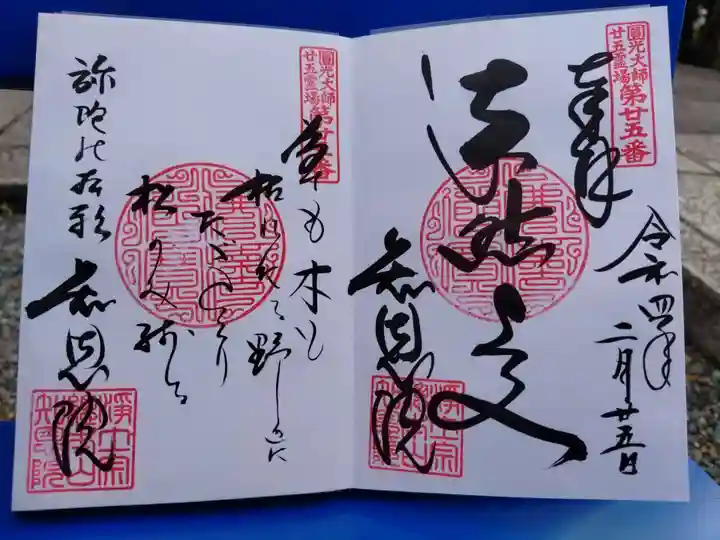 奉拝
圓光大師
廿五霊場
第廿五番
令和四年
二月廿五日
法然上人
知恩院
圓光大師
廿五霊場
第廿五番
草も木も
枯れたる野辺に
ただひとり
松のみ残る
弥陀の本願
知恩院